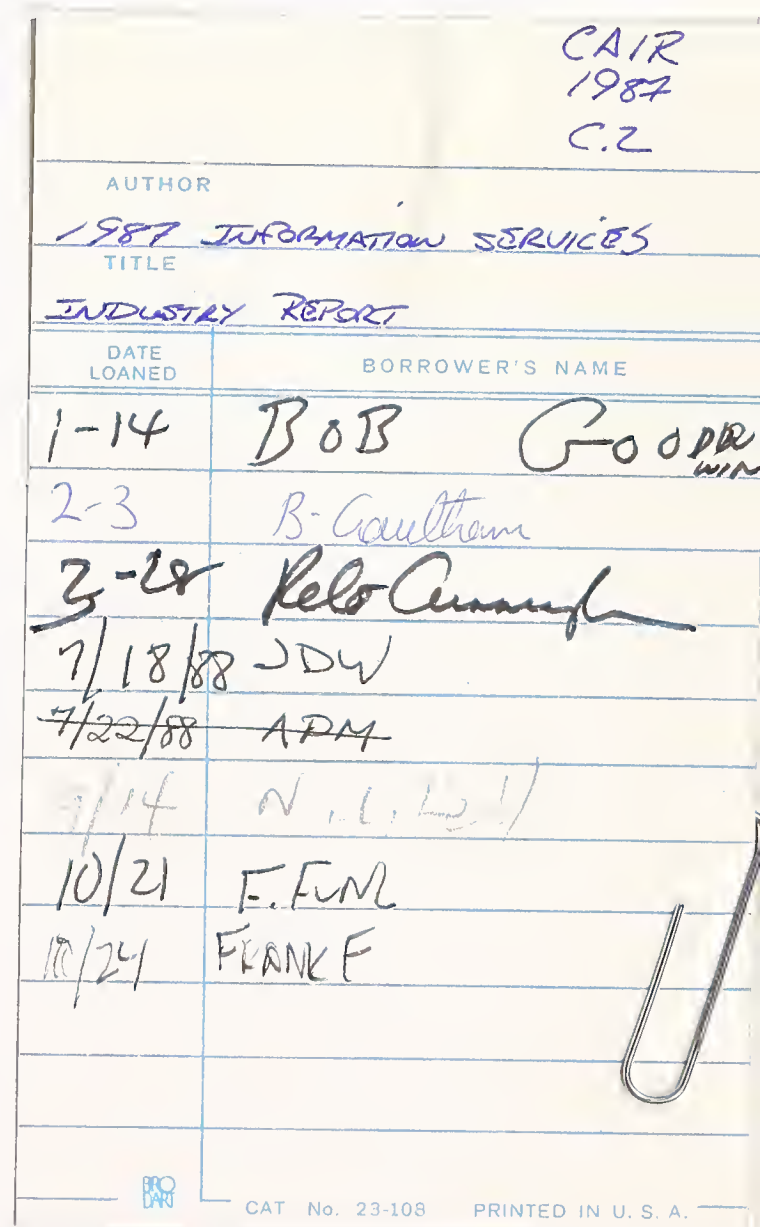 CAIR
1987
C.2
AUTHOR
1987 INFORMATION SERVICES
TITLE
INDUSTRY REPORT
DATE LOANED BORROWER'S NAME
1-14 BOB GOODWIN
2-3 B-Gaultham
3-28
7/18/88 JDW
7/22/88 APM
/14 N.
10/21 F. FUNK
10/24 FRANK F
BRO DART
CAT No. 23-108 PRINTED IN U.S.A.